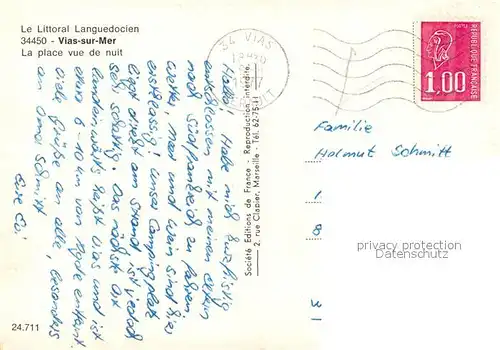 Le Littoral Languedocien
34450 - Vias-sur-Mer
La place vue de nuit
34 VIAS
RÉPUBLIQUE FRANÇAISE
1,00
Hallo! Habe mich kurzfristig
entschlossen mit meinen Eltern
nach Südfrankreich zu fahren.
Wetter, Meer und Wein sind hier
erstklassig! Unser Campingplatz
liegt direkt am Strand, ist jedoch
sehr schattig. Das nächste Ort
landeinwärts heißt Vias und ist
etwa 8-10 km von Agde entfernt.
Viele Grüße an alle, besonders
an Oma Schmitt
Eure Evi
Société Editions de France - Reproduction interdite.
2, rue Clapier, Marseille - Tél. 62-75-11
Familie
Helmut Schmitt
1
8
31
privacy protection
AnsichtskartenVersand.com
24.711